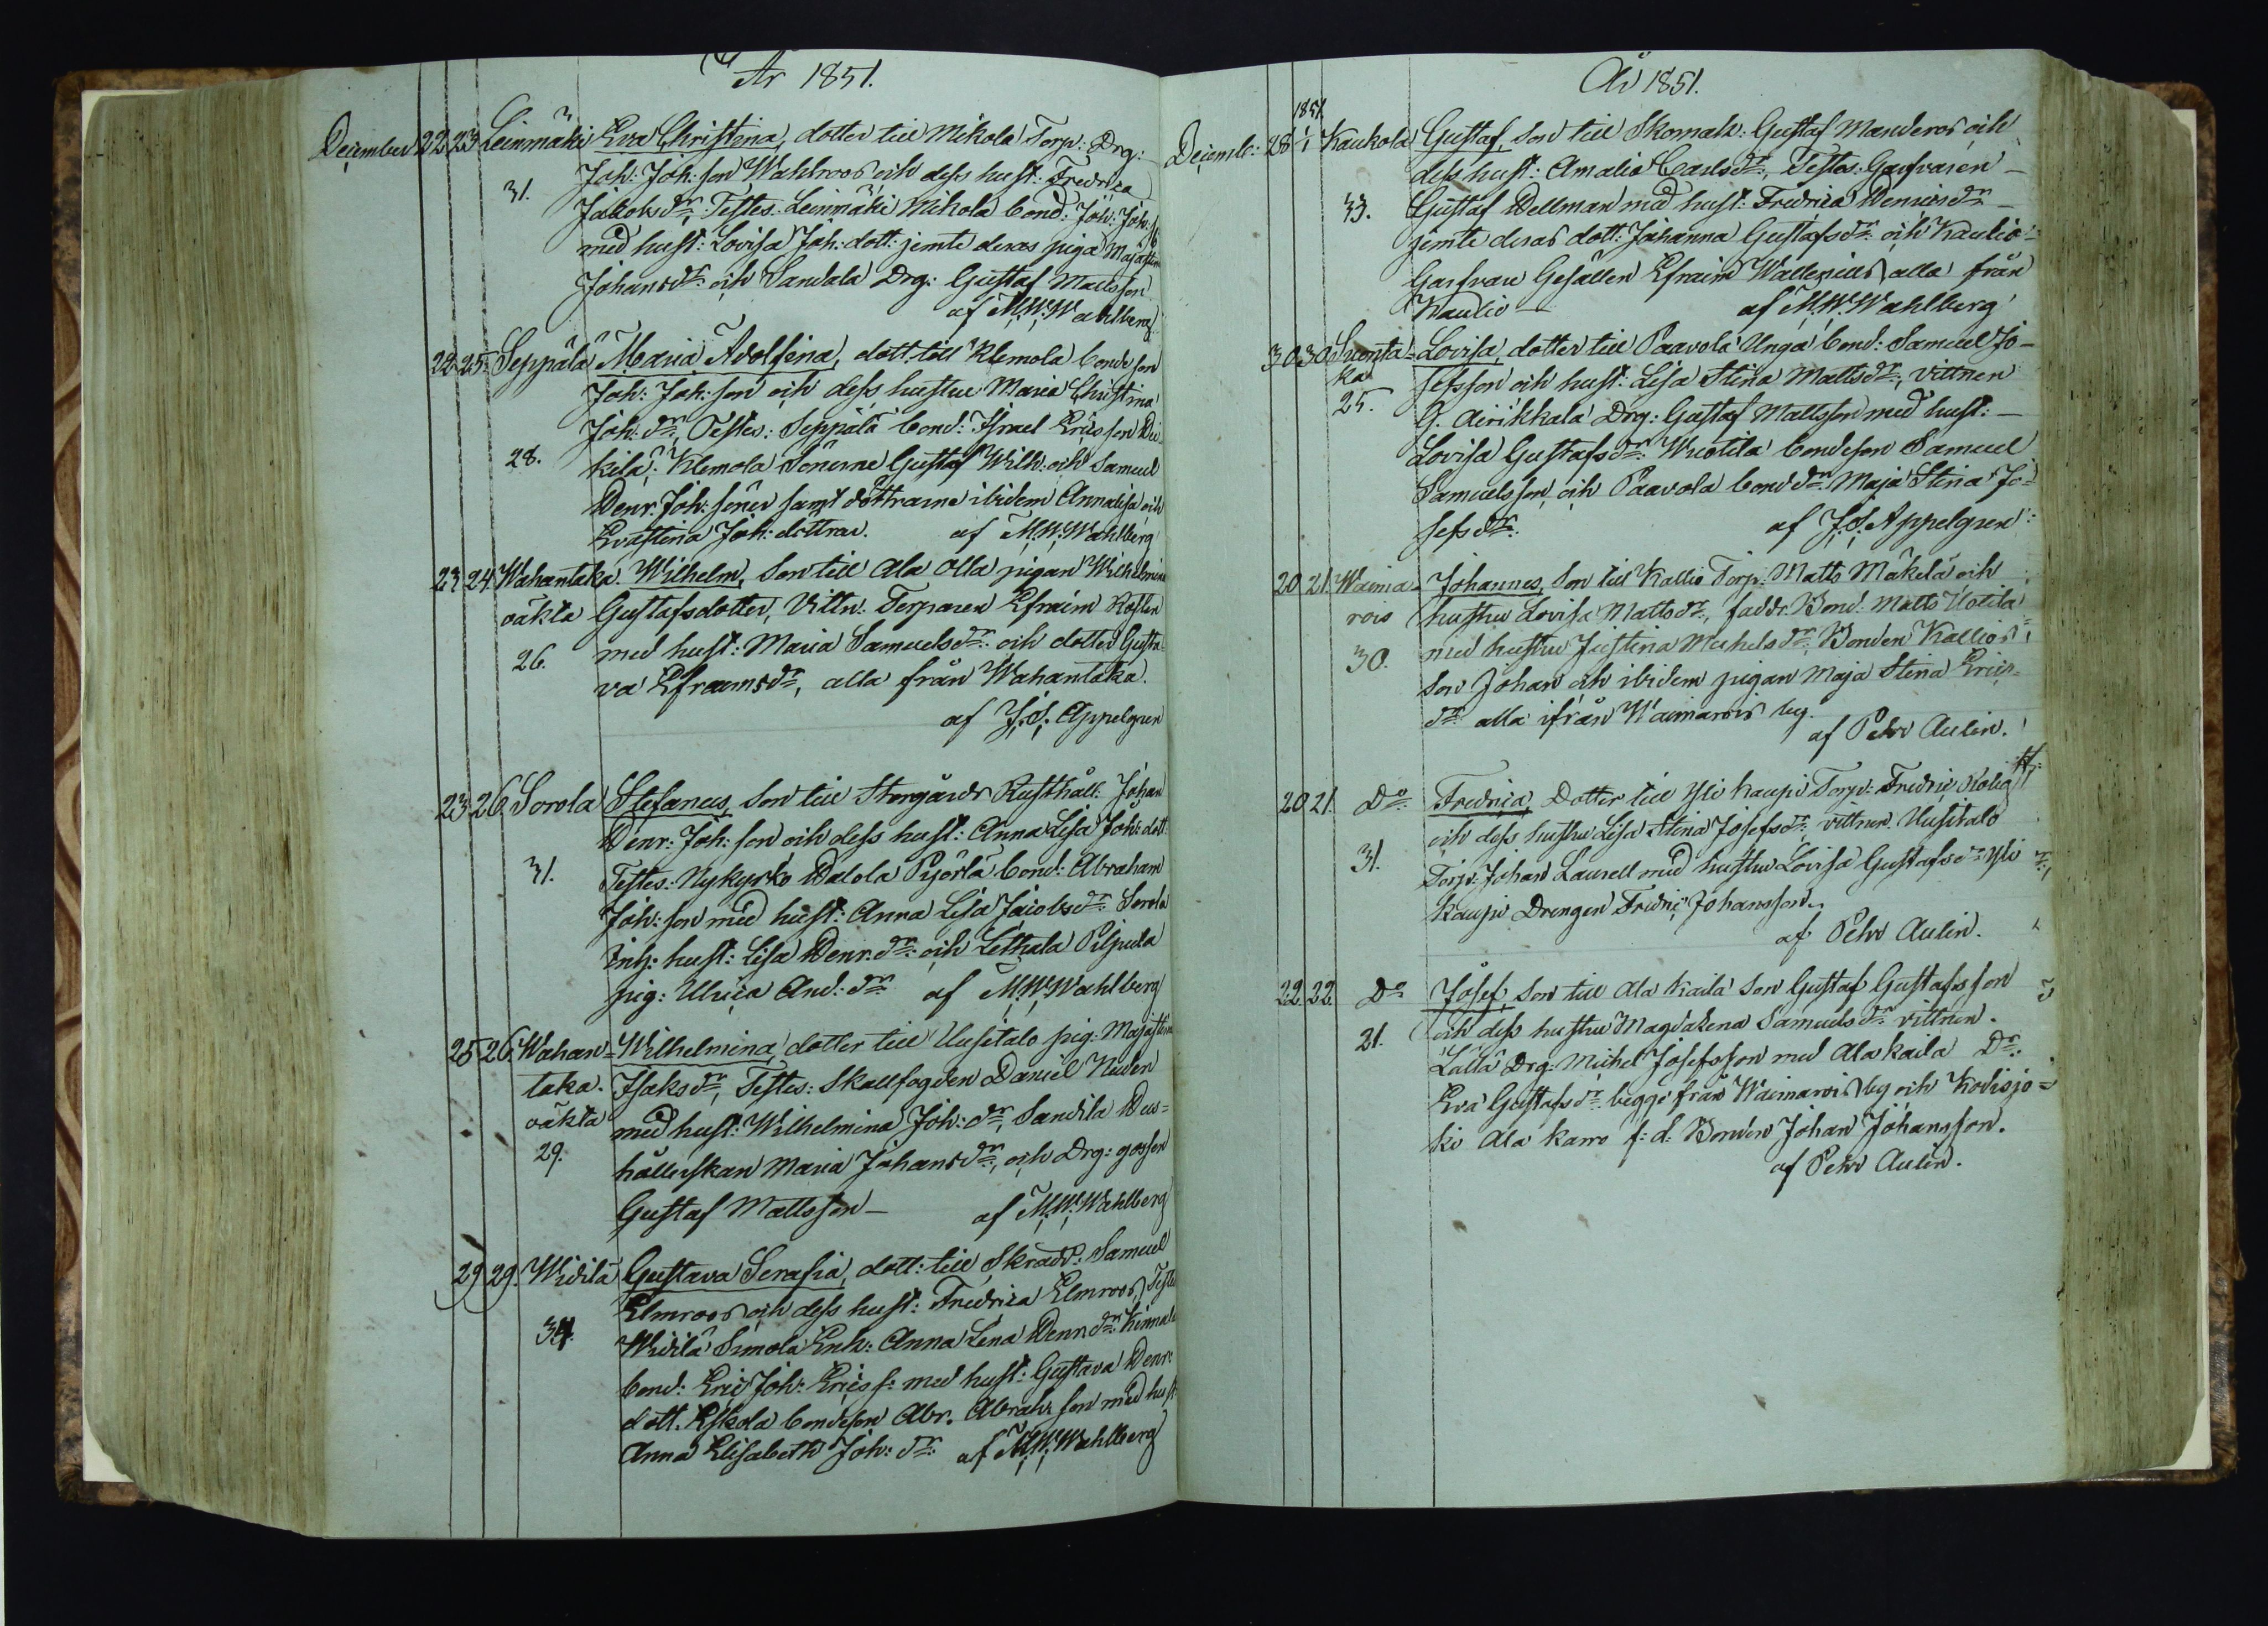 År 1851.
December 22 23 Leinmäki Eva Christina, dotter till Mikola Torp: Drg:
Joh: Joh: son Wahlroos och dess hust: Fredrica
31. Jakobs dr: Testes. Leinmäki Mikola bond: Joh: Joh: s:
med hust: Lovisa Joh: dott: jemte deras piga Majastina
Johans dr: och Sandala Drg: Gustaf Matsson
af M.W. Wahlberg
22 25. Seppälä Maria Adolfina, dott: till Klemola bonde son
Joh: Joh: son och dess hustru Maria Christina
Joh: dr, Testes: Seppälä bond: Israel Ericsson
28. Klemola Sönerne Gustaf Wilh: och Samuel
Henr: Joh: söner samt döttrarne ibidem Annalisa och
Evastina Joh: döttrar. af M.W. Wahlberg
23 24 Wahantaka. Wilhelm, Son till Ala Olla pigan Wilhelmina
oäkta Gustafsdotter, Vittn: Torparen Efraim
26. med hust: Maria Samuels dr: och dotter Gusta-
va Efraims dr, alla från Wahantaka.
af J.S. Appelgren
23 26 Sorola Stefanus, Son till Storgårds Rusthåll: Johan
Henr: Joh: son och dess hust: Anna Lisa Joh: dott:
31. Testes: Nykyrko Walola Pyörlä bond: Abraham
Joh: son med hust: Anna Lisa Jacobs dr: Sorola
Inh: hust: Lisa Henr: dr: och Lethala Pilpula
pig: Ulrica And: dr: af M.W. Wahlberg
25 26. Wahan- Wilhelmina, dotter till Uusitalo pig: Majastina
taka. Isaks dr, Testes: Skallfogden Daniel Niden
oäkta med hust: Wilhelmina Joh: dr, Sandila Hus-
29. hållerskan Maria Johans dr:, och Drg: gossen
Gustaf Mattsson – af M.W. Wahlberg
29 29. Widilä Gustava Serafia, dott: till Skrädd: Samuel
Elmroos och dess hust: Fredrica Elmroos, Testes
34. Widilä Simola Enk: Anna Lena Henr: dr: Kinnala
bond: Eric Joh: Erics s: med hust: Gustava Henr:
dott. Eskola bondeson Abr. Abrah: son med hust:
Anna Elisabeth Joh: dr: af M.W. Wahlberg
År 1851.
1851
Decemb: 28 1 Kaukola Gustaf, Son till Skomak: Gustaf Manderos och
dess hust: Amalia Carls dr:, Testes: Garfvaren –
33. Gustaf Hellman med hust: Fredrica Henrics dr –
jemte deras dott: Johanna Gustafs dr: och Kaulio-
Garfvare Gesällen Efraim Wallenius alla från
Kaulio af M.W. Wahlberg
30 30 Suonta- Lovisa, dotter till Paavola Unga bond: Samuel Jo-
ka sefsson och hust: Lisa Stina Matts dr:, vittnen
25. G. Airikkala Drg: Gustaf Mattsson med hust: –
Lovisa Gustafs dr: Wuotila bondeson Samuel
Samuelsson, och Paavola bond dr: Maja Stina Jo-
sefs dr: af J.S. Appelgren
20 21. Waima- Johannes, Son till Kallio Torp: Matts Mäkelä och
rois hustru Lovisa Matts dr:, faddr: Bond: Matts Uotila
30. med hustru Justina Michels dr: Bonden Kallios
Son Johan och ibidem pigan Maja Stina Erics-
dr: alla ifrån Waimarois by.
af Pehr Aulin.
20 21. Do Fredrica, Dotter till Yli Kaupi Torp: Fredric
och dess hustru Lisa Stina Josefs dr:, vittnen. Uusitalo
31. Torp: Johan Laurell med hustru Lovisa Gustafs dr: Yli
Kaupi Drengen Fredric Johansson.
af Pehr Aulin.
22 22 Do Josef, Son till Ala Kaila Son Gustaf Gustafsson
21. och dess hustru Magdalena Samuels dr: vittnen.
Lalla Drg: Michel Josefsson med Ala Kaila Dr:
Eva Gustafs dr: begge från Waimarois by och Kodisjo-
ki Ala Karro f: d: Bonden Johan Johansson.
af Pehr Aulin.